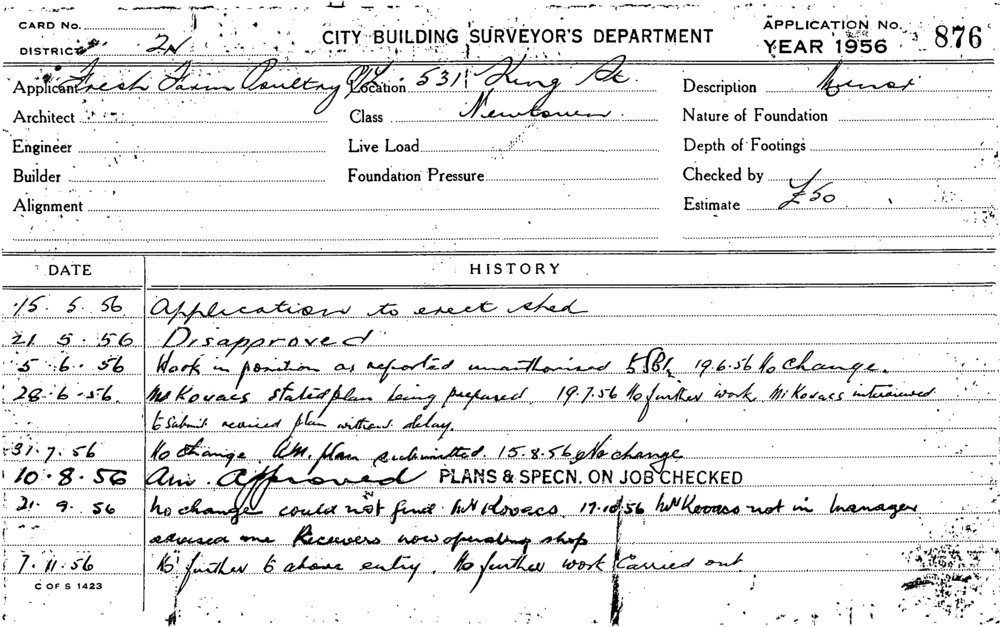 CARD No.
DISTRICT 2N
CITY BUILDING SURVEYOR'S DEPARTMENT
APPLICATION No. 876
YEAR 1956
Applicant Fresh Farm Poultry P/L Location 531 King St. Description Minor
Architect Class Newtown. Nature of Foundation
Engineer Live Load Depth of Footings
Builder Foundation Pressure Checked by
Alignment Estimate £50
DATE HISTORY
15. 5. 56 Application to erect shed
21 5. 56 Disapproved
5. 6. 56 Work in position as reported unauthorised 19.6.56 No change.
28.6.56. Mr Kovacs stated plan being prepared. 19.7.56 No further work. Mr Kovacs interviewed
to submit revised plan without delay.
31.7.56 No change. Am. plan submitted. 15.8.56 No change
10.8.56 Am. Approved PLANS & SPECN. ON JOB CHECKED
21. 9. 56 No change could not find Mr Kovacs. 17.10.56 Mr Kovacs not in manager
advised me Receivers now operating shop
7.11.56 No further to above entry. No further work carried out
C OF S 1423